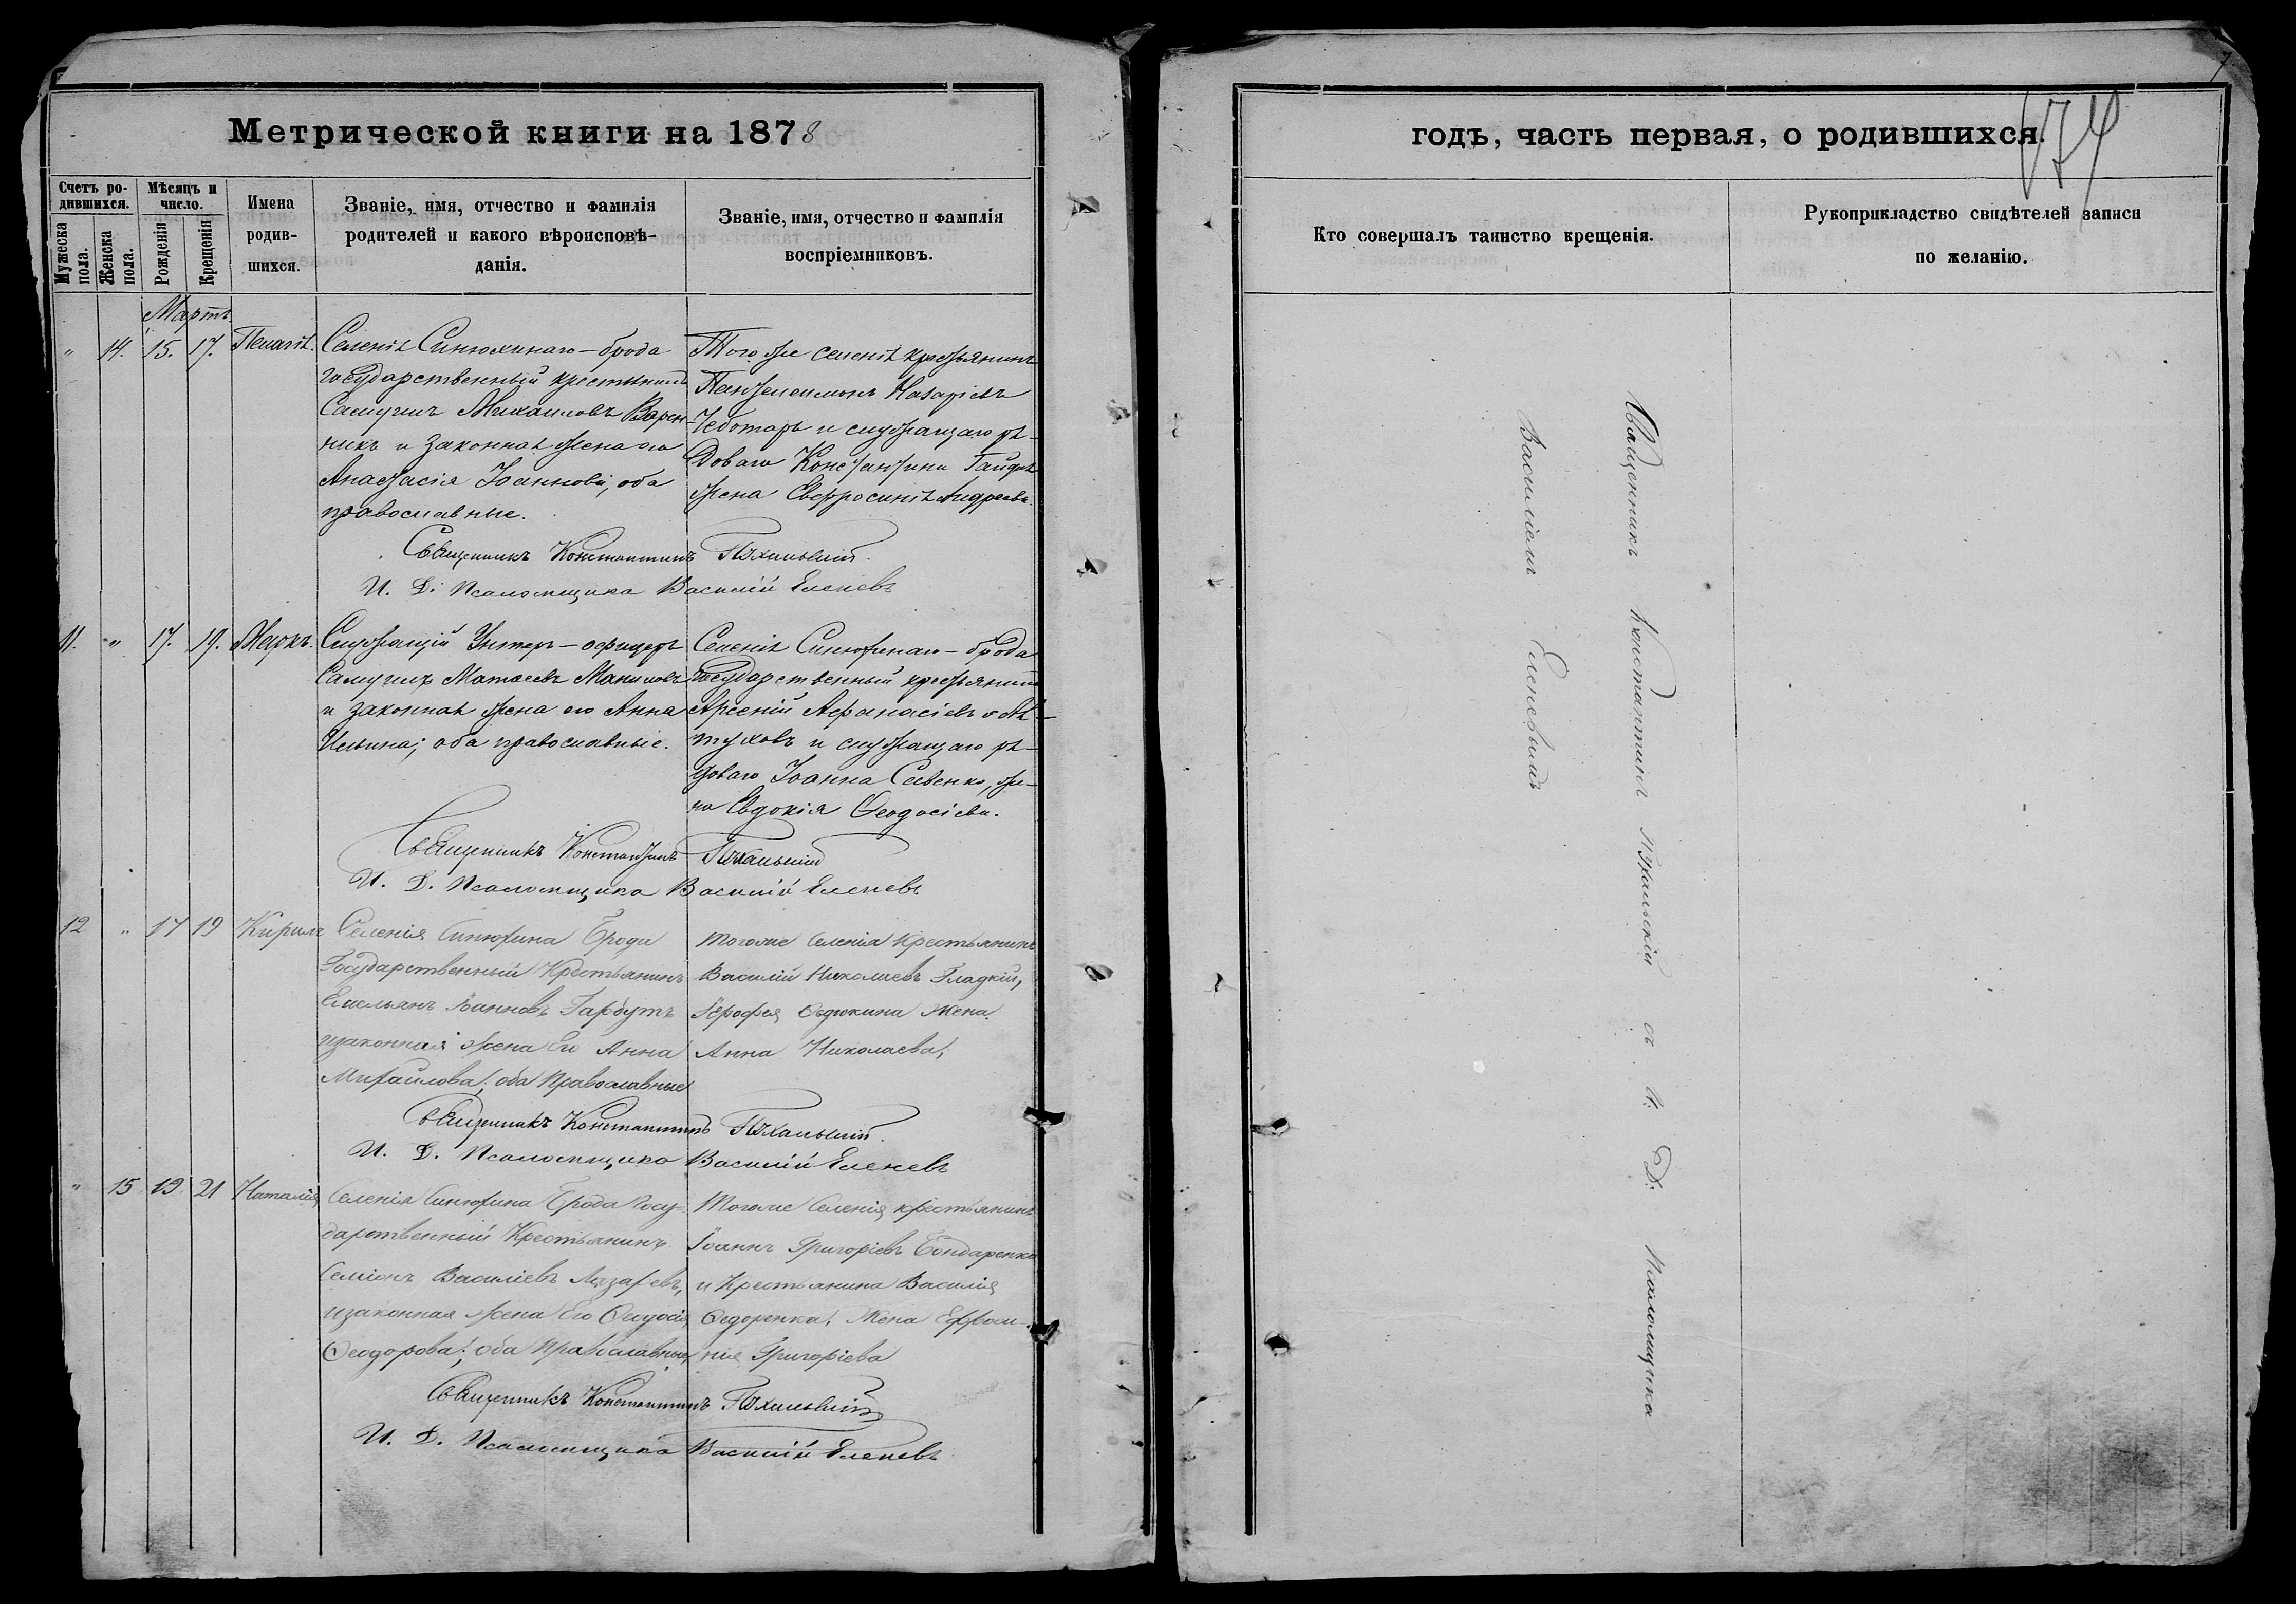 Метрической книги на 1878
Счетъ родившихся.
Мѣсяцъ и число.
Мужеска пола.
Женска пола.
Рожденія
Крещенія
Имена родившихся.
Званіе, имя, отчество и фамилія родителей и какого вѣроисповѣданія.
Званіе, имя, отчество и фамилія воспріемниковъ.
Мартъ
" 14. 15. 17. Пелагія.
Селенія Синюхинаго-брода
государственный крестьянинъ
Самуилъ Михаиловъ Варен-
никъ и законная жена его
Анастасія Іоаннова, оба
православные.
Того же селенія крестьянинъ
Пантелеимонъ Назаріевъ
Чеботарь и служащаго ря-
доваго Константина
жена Евфросинія Андреева.
Священникъ Константинъ
И. Д. Псаломщика Василій Еленевъ
11. " 17. 19. Маркъ.
Служащій Унтеръ-офицеръ
Самуилъ Матѳеевъ
и законная жена его Анна
Ильина; оба православные.
Селенія Синюхинаго-брода
Государственный крестьянинъ
Арсеній Аѳанасіевъ
и служащаго ря-
доваго Іоанна жe-
на Евдокія Ѳеодосіева.
Священникъ Константинъ
И. Д. Псаломщика Василій Еленевъ
12 " 17 19 Кирилъ
Селенія Синюхина Брода
Государственный Крестьянинъ
Емельянъ Іоанновъ Гарбутъ
изаконная жена Его Анна
Михайлова; оба Православные
Тогоже Селенія Крестьянинъ
Василій Николаевъ Гладкій,
Жена
Анна Николаева;
Священникъ Константинъ
И. Д. Псаломщика Василій Еленевъ
" 15 19 21 Наталія
Селенія Синюхина Брода Госу-
дарственный Крестьянинъ
Семіонъ Василіевъ Лазаревъ,
изаконная жена Его Ѳеодосія
Ѳеодорова; оба Православные,
Тогоже Селенія крестьянинъ
Іоаннъ Григоріевъ Бондаренко
и Крестьянина Василія
Ѳедоренка, Жена Ефроси-
нія Григоріева
Священникъ Константинъ
И. Д. Псаломщика Василій Еленевъ
7
174
годъ, часть первая, о родившихся.
Кто совершалъ таинство крещенія.
Рукоприкладство свидѣтелей записи
по желанію.
Священникъ Константинъ съ И. Д. Псаломщика
Василіемъ Еленевымъ